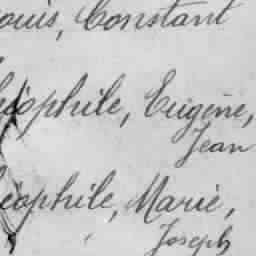 ouis, Constant
éophile, Eugène,
Jean
éophile, Marie,
Joseph